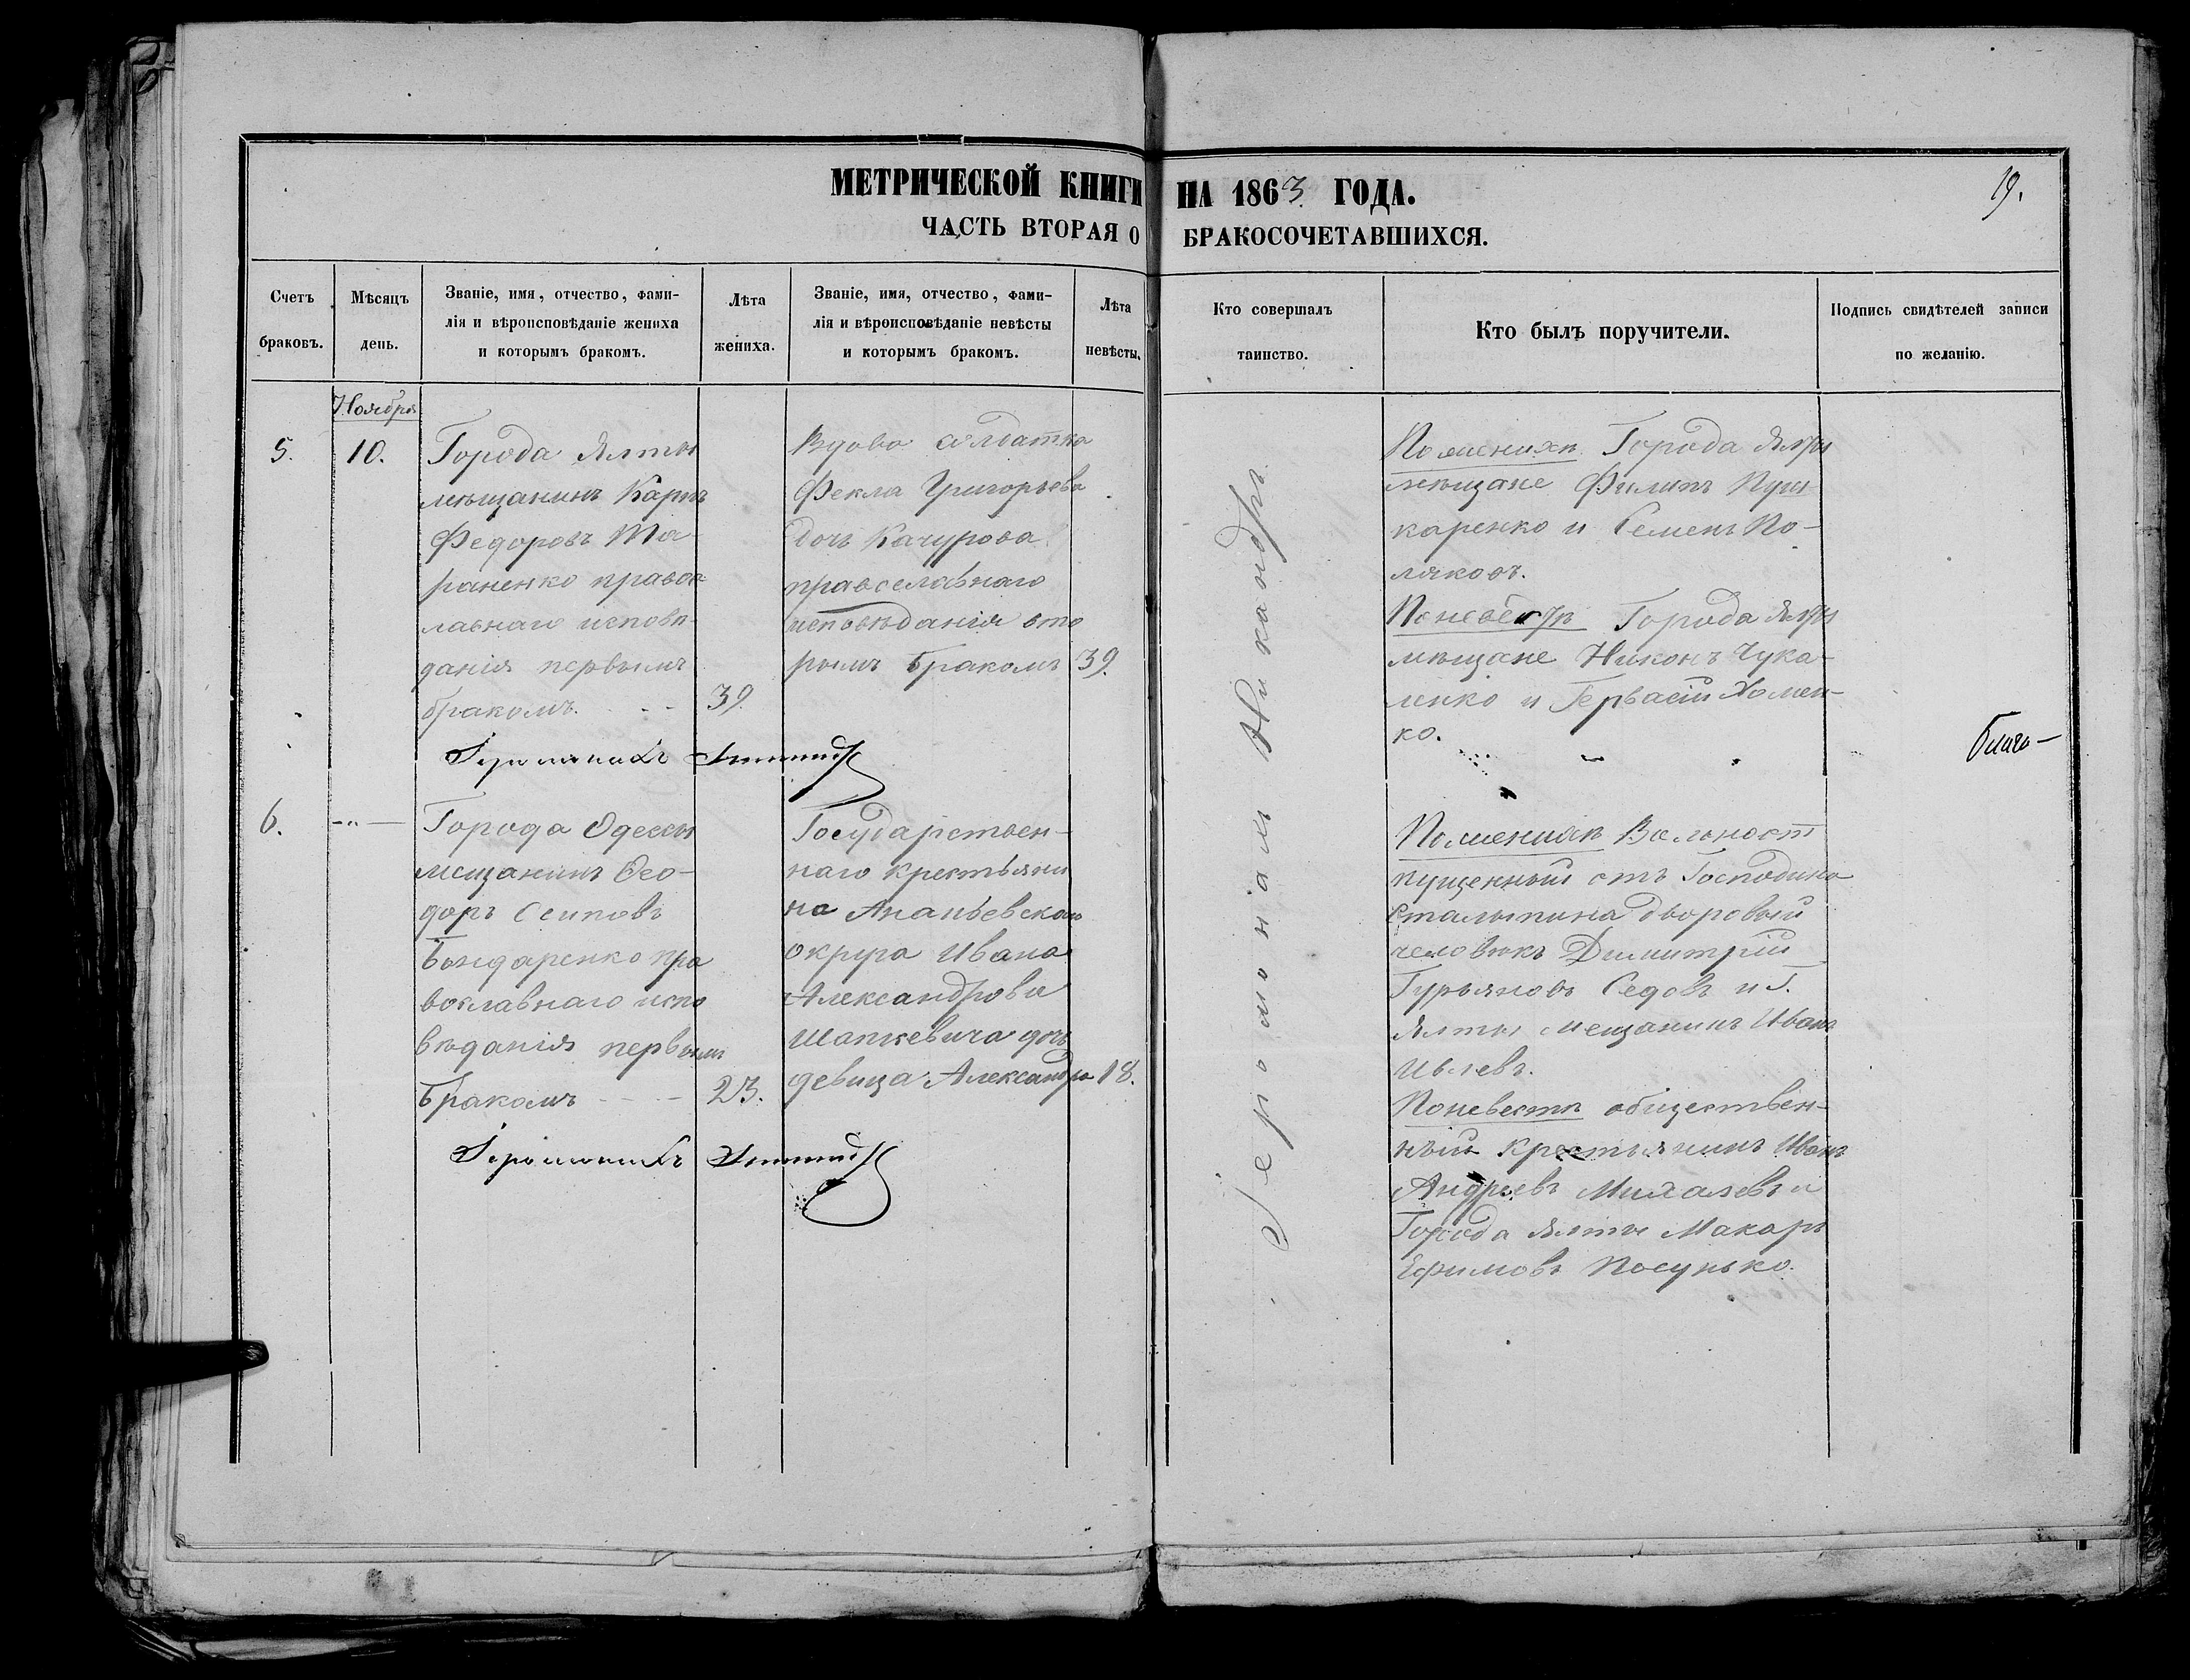 МЕТРИЧЕСКОЙ КНИГИ НА 1863 ГОДА.
19.
ЧАСТЬ ВТОРАЯ О БРАКОСОЧЕТАВШИХСЯ.
Счетъ
браковъ.
Мѣсяцъ
день.
Званіе, имя, отчество, фами-
лія и вѣроисповѣданіе жениха
и которымъ бракомъ.
Лѣта
жениха.
Званіе, имя, отчество, фами-
лія и вѣроисповѣданіе невѣсты
и которымъ бракомъ.
Лѣта
невѣсты.
Кто совершалъ
таинство.
Кто былъ поручители.
Подпись свидѣтелей записи
по желанію.
Ноября
5.
10.
Города Ялты
мѣщанинъ Карпъ
Федоровъ Та
раненко правос
лавнаго исповѣ-
данія первымъ
бракомъ.
39.
Вдова солдатка
Фекла Григорьева
дочь Качурова
православнаго
исповѣданія вто
рымъ бракомъ
39.
Іеромонахъ
Іеромонахъ Никандръ.
По женихѣ Города Ялты
мѣщане Филипъ Пуш
каренко и Семенъ По-
ляковъ.
По невѣстѣ Города Ялты
мѣщане Никонъ Чука-
ленко и Гервасій Хомен-
ко.
благо-
6.
-"-
Города Одессы
мещанинъ Ѳео-
доръ Осиповъ
Бондаренко пра
вославнаго испо
вѣданія первымъ
бракомъ
23.
Государствен-
наго крестьяни
на Ананьевскаго
округа Ивана
Александрова
Шапкевича дочь
девица Александра
18.
Іеромонахъ
По женихѣ Вольноот
пущенный отъ Господина
Сталыпина дворовый
человѣкъ Димитрій
Гурьяновъ Седовъ и Г.
Ялты мещанинъ Иванъ
Ивлевъ.
По невестѣ обществен-
ный крестьянинъ Иванъ
Андреевъ Михалевъ и
Города Ялты Макаръ
Ефимовъ Посунько.